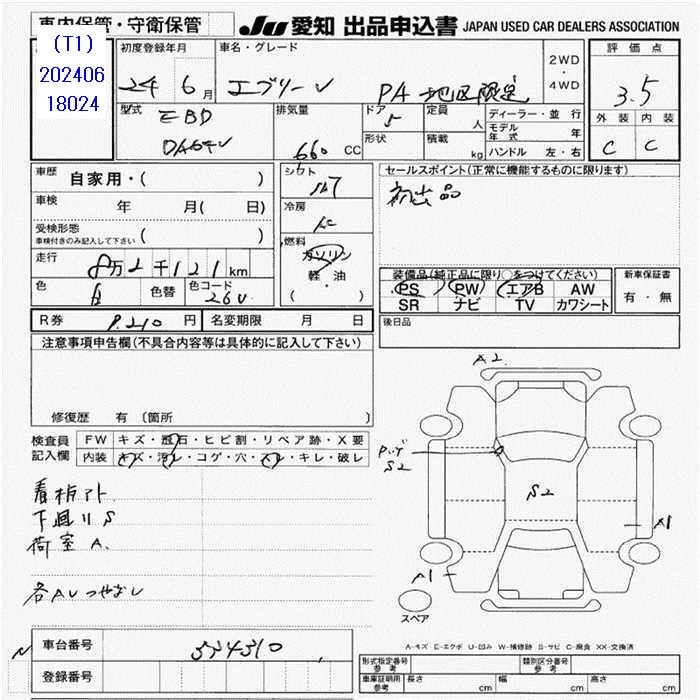 車内保管・守衛保管
JU 愛知 出品申込書 JAPAN USED CAR DEALERS ASSOCIATION
(T1)
202406
18024
初度登録年月
24 6月
車名・グレード
エブリーV PA 地区限定
2WD
・
4WD
評価点
3.5
外装 内装
C C
型式
EBD
DA64V
排気量
660 CC
ドア
5
形状
定員
人
積載
kg
ディーラー・並行
モデル年式 年
ハンドル 左・右
車歴 自家用・( )
車検 年 月( 日)
受検形態
車検付きのみ記入して下さい ( )
走行 8万2千121km
色 白 色替 色コード 26U
シフト
冷房
AC
燃料
ガソリン
軽・油
( ・ )
セールスポイント(正常に機能するものに限ります)
初出品
装備品(純正品に限り○をつけてください)
PS PW エアB AW
SR ナビ TV カワシート
新車保証書
有・無
後日品
R券 8,210 円 名変期限 月 日
注意事項申告欄(不具合内容等は具体的に記入して下さい)
修復歴 有 〔箇所
検査員
記入欄
FW キズ・飛石・ヒビ割・リペア跡・X要
内装 キズ・汚レ・コゲ・穴・スレ・キレ・破レ
看板アト
下廻リS
荷室A.
各AUつやなし
A2
S2
S2
A1
A1
スペア
A-キズ E-エクボ U-凹み W-補修跡 S-サビ C-腐食 XX-交換済
車台番号 534310
登録番号
形式指定番号
参考
類別区分番号
参考
車庫証明用
参考
長さ cm 幅 cm 高さ cm